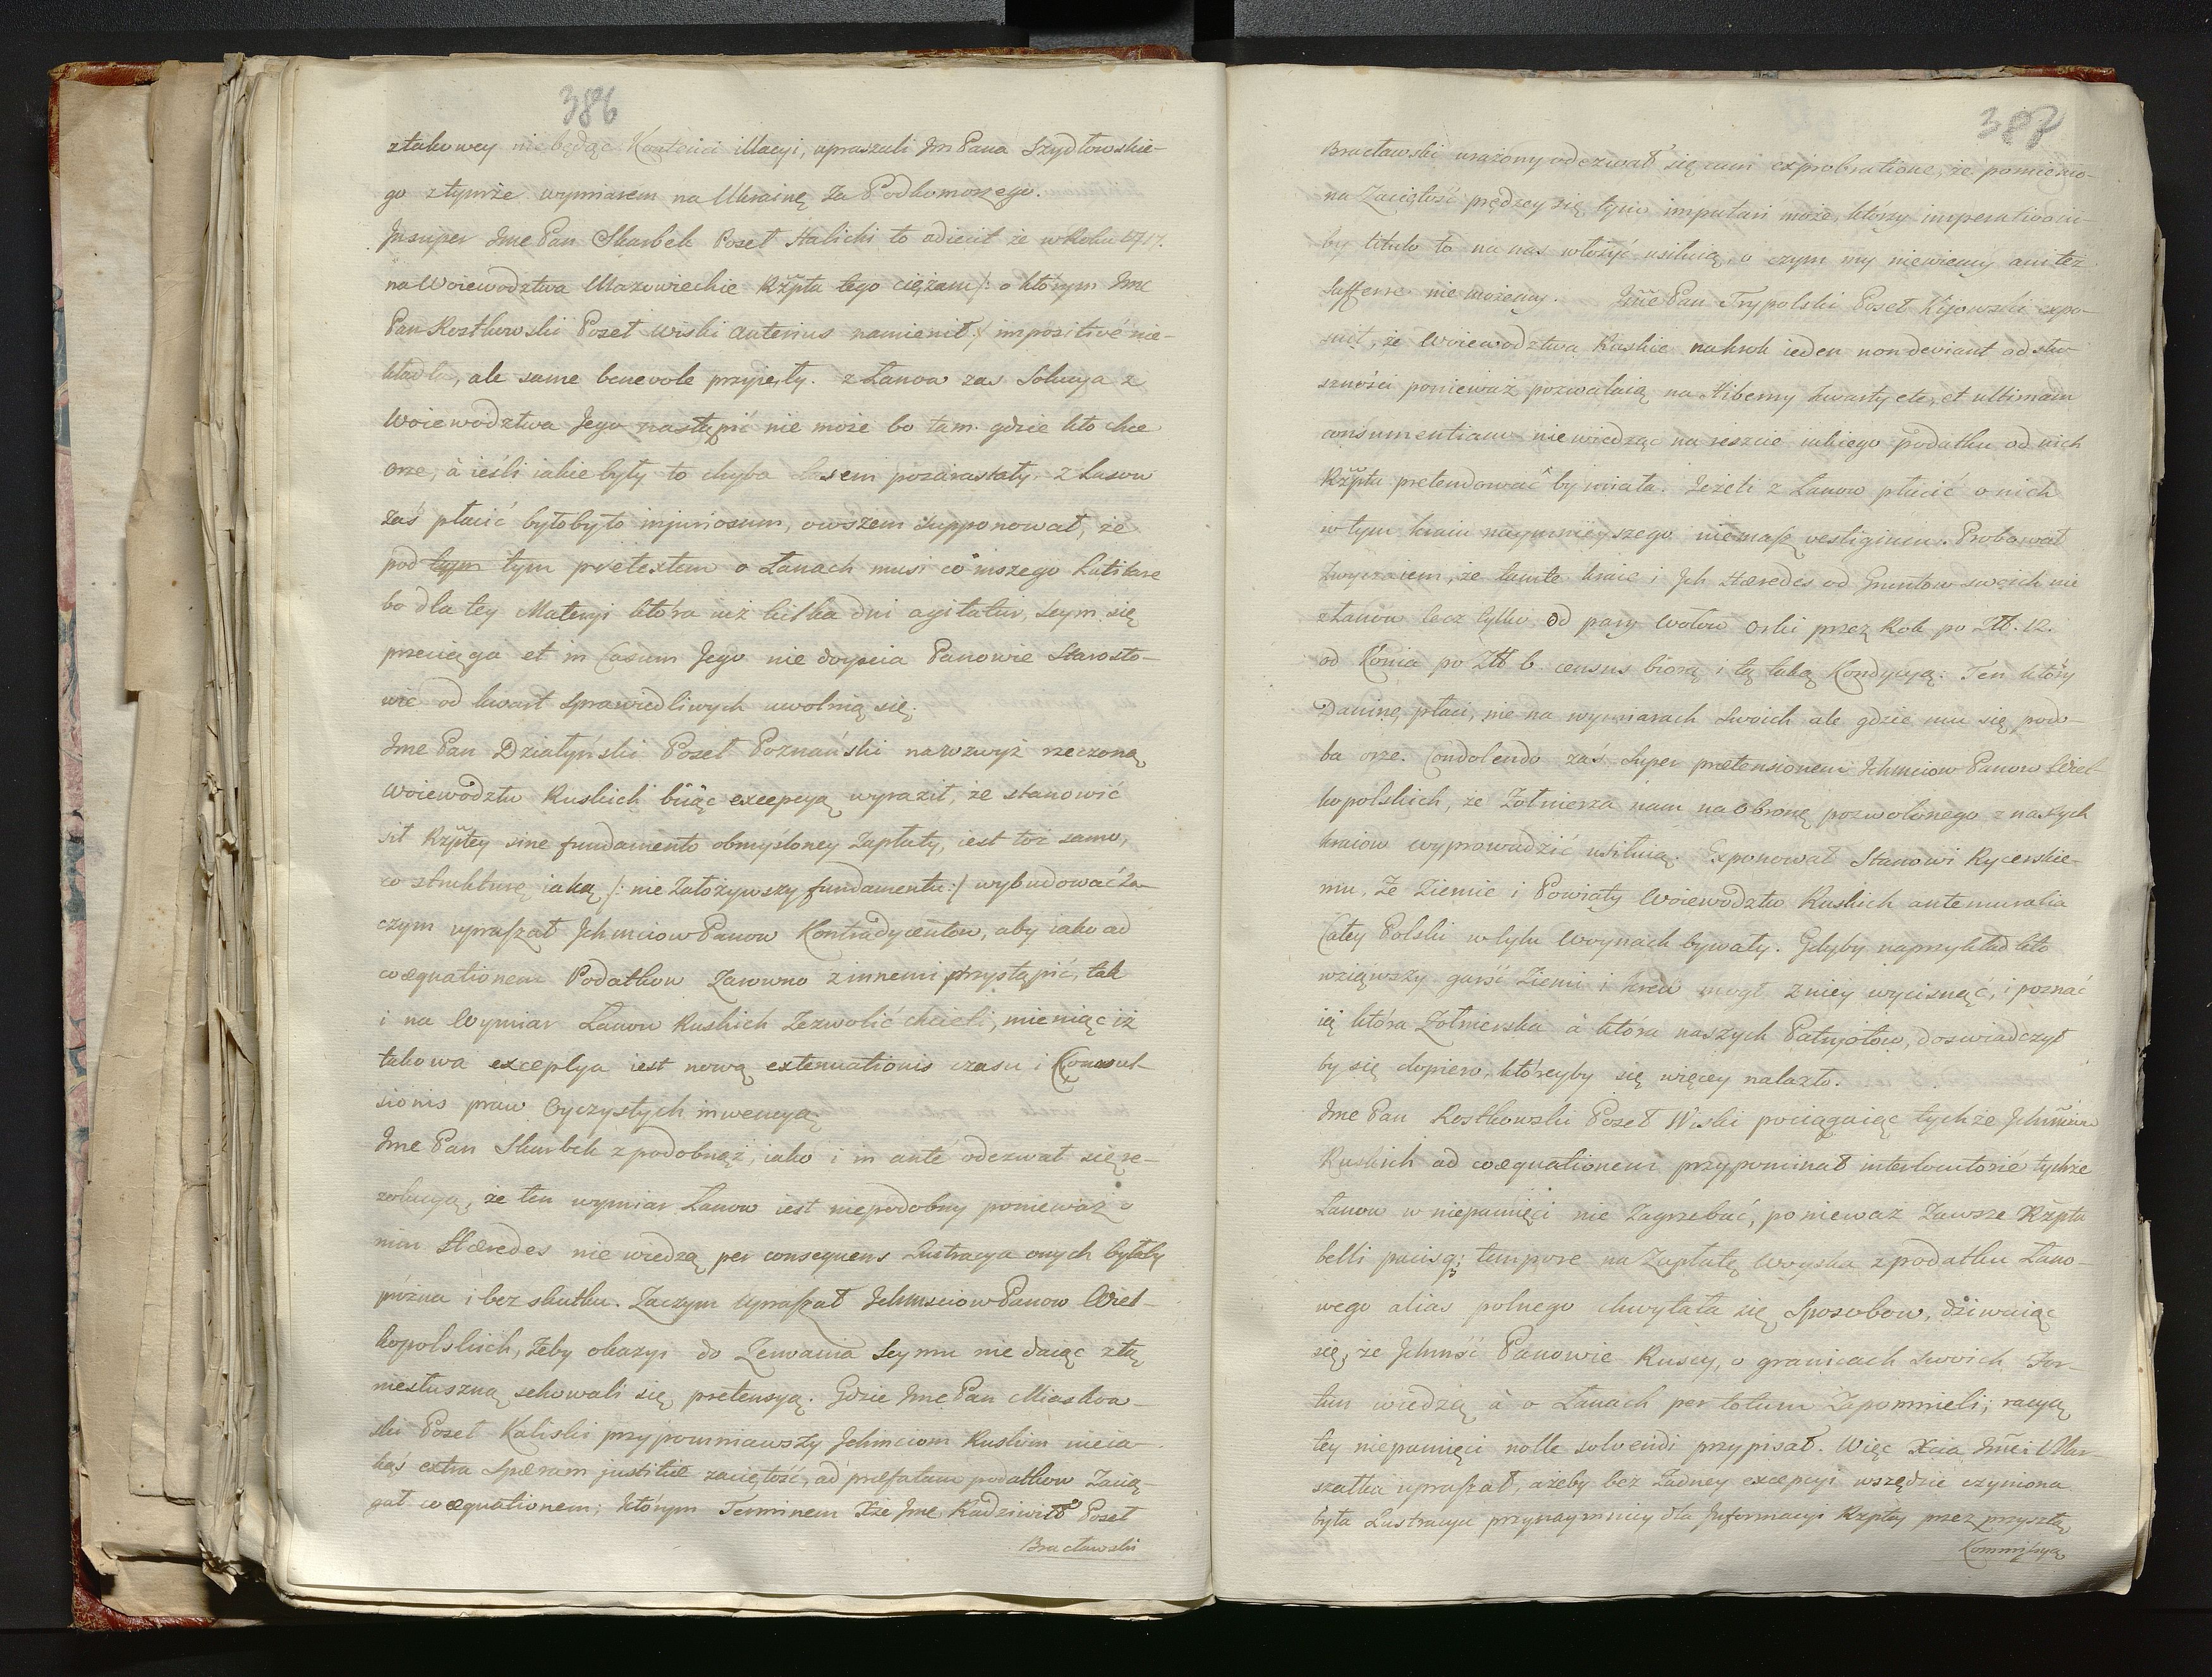 386
ztakowey nie będąc Kontenci illacyi, upraszali Jm Pana Szydłowskie-
go z tymże wymiarem na Ukrainę za Podkomorzego.
Insuper Jmc Pan Skarbek Poseł Halicki to adiecit że w Roku 1717.
na Woiewodztwa Mazowieckie Rzpta tego ciężaru /: o którym Jmc
Pan Rostkowski Poseł Wiski anterius namienił :/ impositivé nie-
kładła, ale same benevole przyjęły. z Łanow zas Solucya z
Woiewodztwa Jego nastąpić nie może bo tam gdzie kto chce
orze, à ieśli iakie były to chyba lasem pozarastały. z Lasow
zaś płacić byłoby to injuriosum, owszem supponował, że
pod tym tym pretextem o Łanach musi co inszego latitare
bo dla tey Materyi która iuż kilka dni agitatur, Seym się
przeciąga et in Casum Jego nie doyscia Panowie Starosto-
wie od kwart sprawiedliwych uwolnią się.
Jmc Pan Działyński Poseł Poznański na rozwyż rzeczoną
Woiewodztw Ruskich biiąc excepcyą wyraził, że stanowić
sił Rzptey sine fundamento obmyśloney Zapłaty, iest toż samo,
co strukturę iaką /: nie Założywszy fundamentu :/ wybudować Za-
czym upraszał Jchmciow Panow Kontradycentow, aby iako ad
coæquationem Podatkow Zarowno z innemi przystąpić, tak
i na Wymiar Łanow Ruskich Zezwolić chcieli, mieniąc iż
takowa exceptya iest nową extenuationis czasu i Konwul-
sionis praw Oyczystych inwencyą.
Jmc Pan Skarbek z podobnąż, iako i in anté odezwał się re-
zolucyą, że ten wymiar Łanow iest niepodobny ponieważ o
nim Hæredes nie wiedzą per consequens Lustracya onych byłaby
prózna i bez skutku. Zaczym upraszał Jchmsciow Panow Wiel-
kopolskich, żeby okazyi do Zerwania Seymu nie daiąc z tą
niesłuszną sehowali się pretensyą. Gdzie Jmc Pan Miaskow-
ski Poseł Kaliski przypomniawszy Jchmciom Ruskim nieia-
kąś extra Spæram justitiæ zaciętość, ad præfatam podatkow Zacią-
gał coæquationem; którym Terminem Xże Jmc Radziwiłł Poseł
Bracławski
387
Bracławski urażony odezwał się cum exprobratione, że pomienio-
na Zaciętość prędzey się tym imputari może, którzy imperativo ni-
by titulo to na nas włożyć usiłuią, o czym my niewiemy ani też
sufferre nie możemy. Jmc Pan Trypolski Poseł Kijowski expo-
suit, że Woiewodztwa Ruskie na krok ieden non deviant od słu-
szności ponieważ pozwalaią na Hiberny kwarty etc, et ultimam
consumentiam nie wiedząc na reszcie iakiego podatku od nich
Rzpta pretendować by miała. Jeżeli z Łanow płacić o nich
w tym kraiu naymnieyszego niemasz vestigium. Probował
Zwyczaiem, że tamte kraie i Jch Hæredes od Gruntow swoich nie
z Łanow lecz tylko od pary Wołow orki przez Rok po Złł. 12.
od Konia po Złł 6. census biorą i tę taką Kondycyą: Ten który
Daninę płaci, nie na wymiarach swoich ale gdzie mu się podo-
ba orze. Condolendo zaś super prætensionem Jchmciow Panow Wiel-
kopolskich, że Zołnierza nam na Obronę pozwolonego z naszych
kraiow wyprowadzić usiłuią. Exponował Stanowi Rycerskie-
mu, Że Ziemie i Powiaty Woiewodztw Ruskich antemuralia
Całey Polski w tylu Woynach bywały. Gdyby naprzykład kto
wziąwszy garść Ziemi i krew mogł z niey wycisnąć, i poznać
ią która Zołnierska à która naszych Patryotow, doswiadczył
by się dopiero, któreyby się więcey nalazło.
Jmc Pan Rostkowski Poseł Wiski pociągaiąc tychże Jchmciow
Ruskich ad coæquationem przypominał interlocutorié tychże
Łanow w niepamięci nie Zagrzebać, ponieważ Zawsze Rzpta
belli pacisq; tempore na Zapłatę Woyska z podatku Łano-
wego alias polnego chwytała się Sposobow, dziwuiąc
się, że Jchmść Panowie Ruscy, o granicach swoich For-
tun wiedzą à o Łanach per totum Zapomnieli; racyą
tey niepamięci nolle solvendi przypisał. Więc Xcia Jmci Mar-
szałka upraszał, ażeby bez Żadney excepcyi wszędzie czyniona
była Lustracya przynaymniey dla Informacyi Rzptey przez przyszłą
Kommissyą